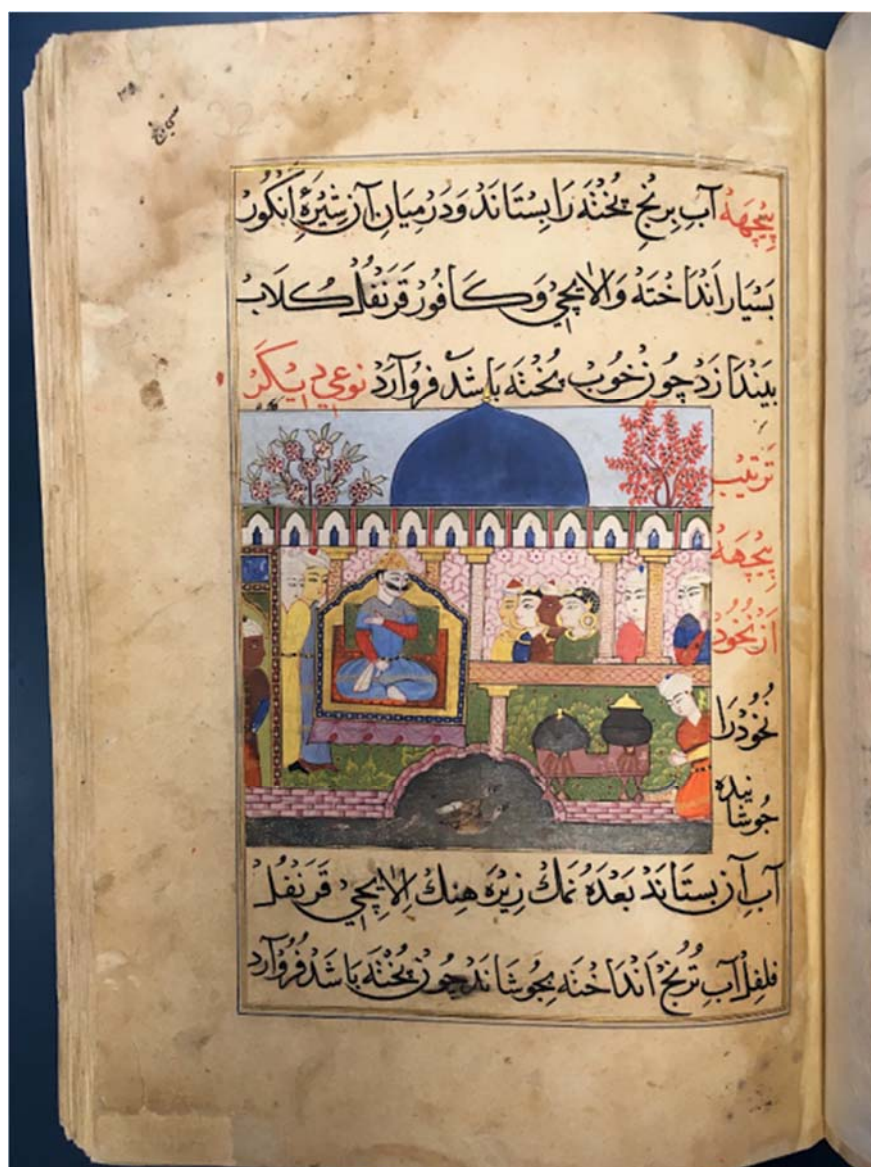 پیچهه آبِ برنجِ پخته را بستاند و در میانِ آن شیرۀ انگور
بسیار انداخته و الایچی و کافور قرنفل کلاب
بیندازد چون خوب پخته باشد فروآرد نوعی دیکر
ترتیب
پیچهه
از نخود
نخود را
جوشانیده
آبِ آن بستاند بعده نمك زیره هنك الایچی قرنفل
فلفل آبِ ترنج انداخته بجوشاند چون پخته باشد فروآرد
۳۵
32